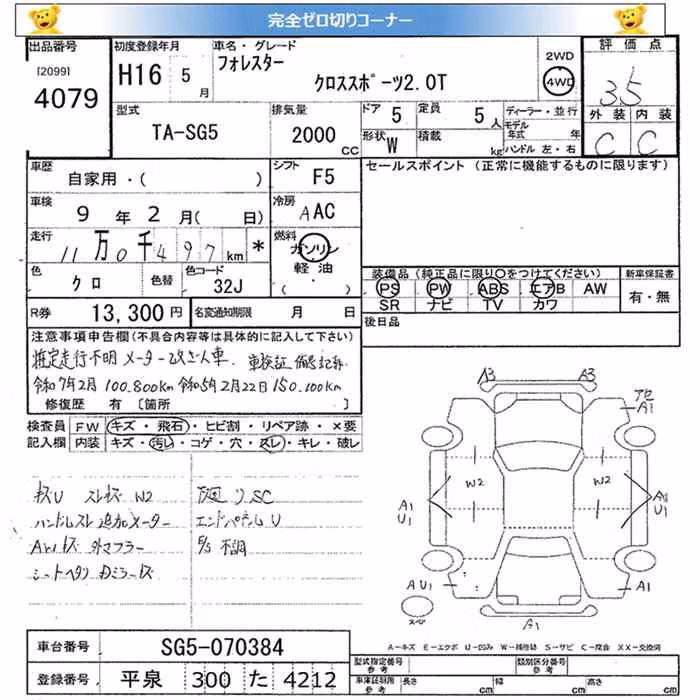 完全ゼロ切りコーナー
出品番号
[2099]
4079
初度登録年月
H16 5 月
車名・グレード
フォレスター
クロススポーツ2.0T
2WD
4WD
評価点
3.5
外装 内装
C C
型式
TA-SG5
排気量
2000 CC
ドア 5
定員 5 人
形状 W
積載 kg
ディーラー・並行
モデル年式 年
ハンドル 左・右
車歴
自家用・( )
シフト F5
セールスポイント (正常に機能するものに限ります)
車検
9 年 2 月( 日)
冷房 AAC
走行
11万0千497km *
燃料 ガソリン
軽油
( )
色 クロ
色替
色コード 32J
装備品(純正品に限り○をつけてください)
新車保証書
PS PW ABS エアB AW
SR ナビ TV カワ
有・無
R券 13,300円
名変通知期限 月 日
後日品
注意事項申告欄(不具合内容等は具体的に記入して下さい)
推定走行不明 メーター改ざん車. 車検証 備考記録
令和7年2月 100.800km 令和5年2月22日 150.100km
修復歴 有 〔箇所 〕
検査員
記入欄
FW キズ・飛石・ヒビ割・リペア跡・×要
内装 キズ・汚レ・コゲ・穴・スレ・キレ・破レ
キズU スレキズ W2
ハンドルスレ 追加メーター
AWキズ 外マフラー
シートヘタリ
リSC
エンドパネルU
不調
A3 A3
A1
W2 W2
A1
U1
U1
AU1 A1
スペア
A1
A-キズ E-エクボ U-凹み W-補修跡 S-サビ C-腐食 XX-交換済
車台番号 SG5-070384
登録番号 平泉 300 た 4212
型式指定番号
参考
類別区分番号
参考
車庫証明用
参考
長さ cm
幅 cm
高さ cm